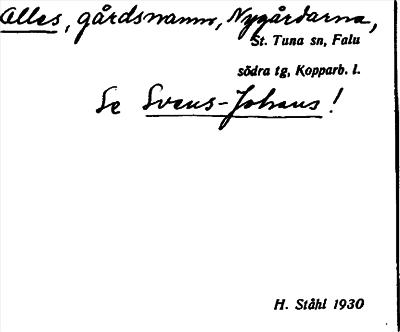 Alles, gårdsnamn, Nygårdarna,
St. Tuna sn, Falu
södra tg, Kopparb. l.
Se Svens-Johans!
H. Ståhl 1930